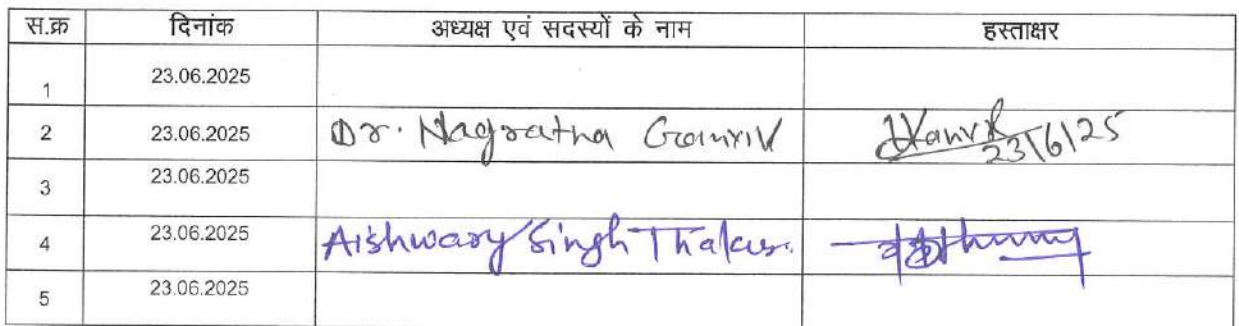 स.क्र दिनांक अध्यक्ष एवं सदस्यों के नाम हस्ताक्षर
1 23.06.2025
2 23.06.2025 Dr. Nagratna Ganvir 23/6/25
3 23.06.2025
4 23.06.2025 Aishwary Singh Thakur.
5 23.06.2025